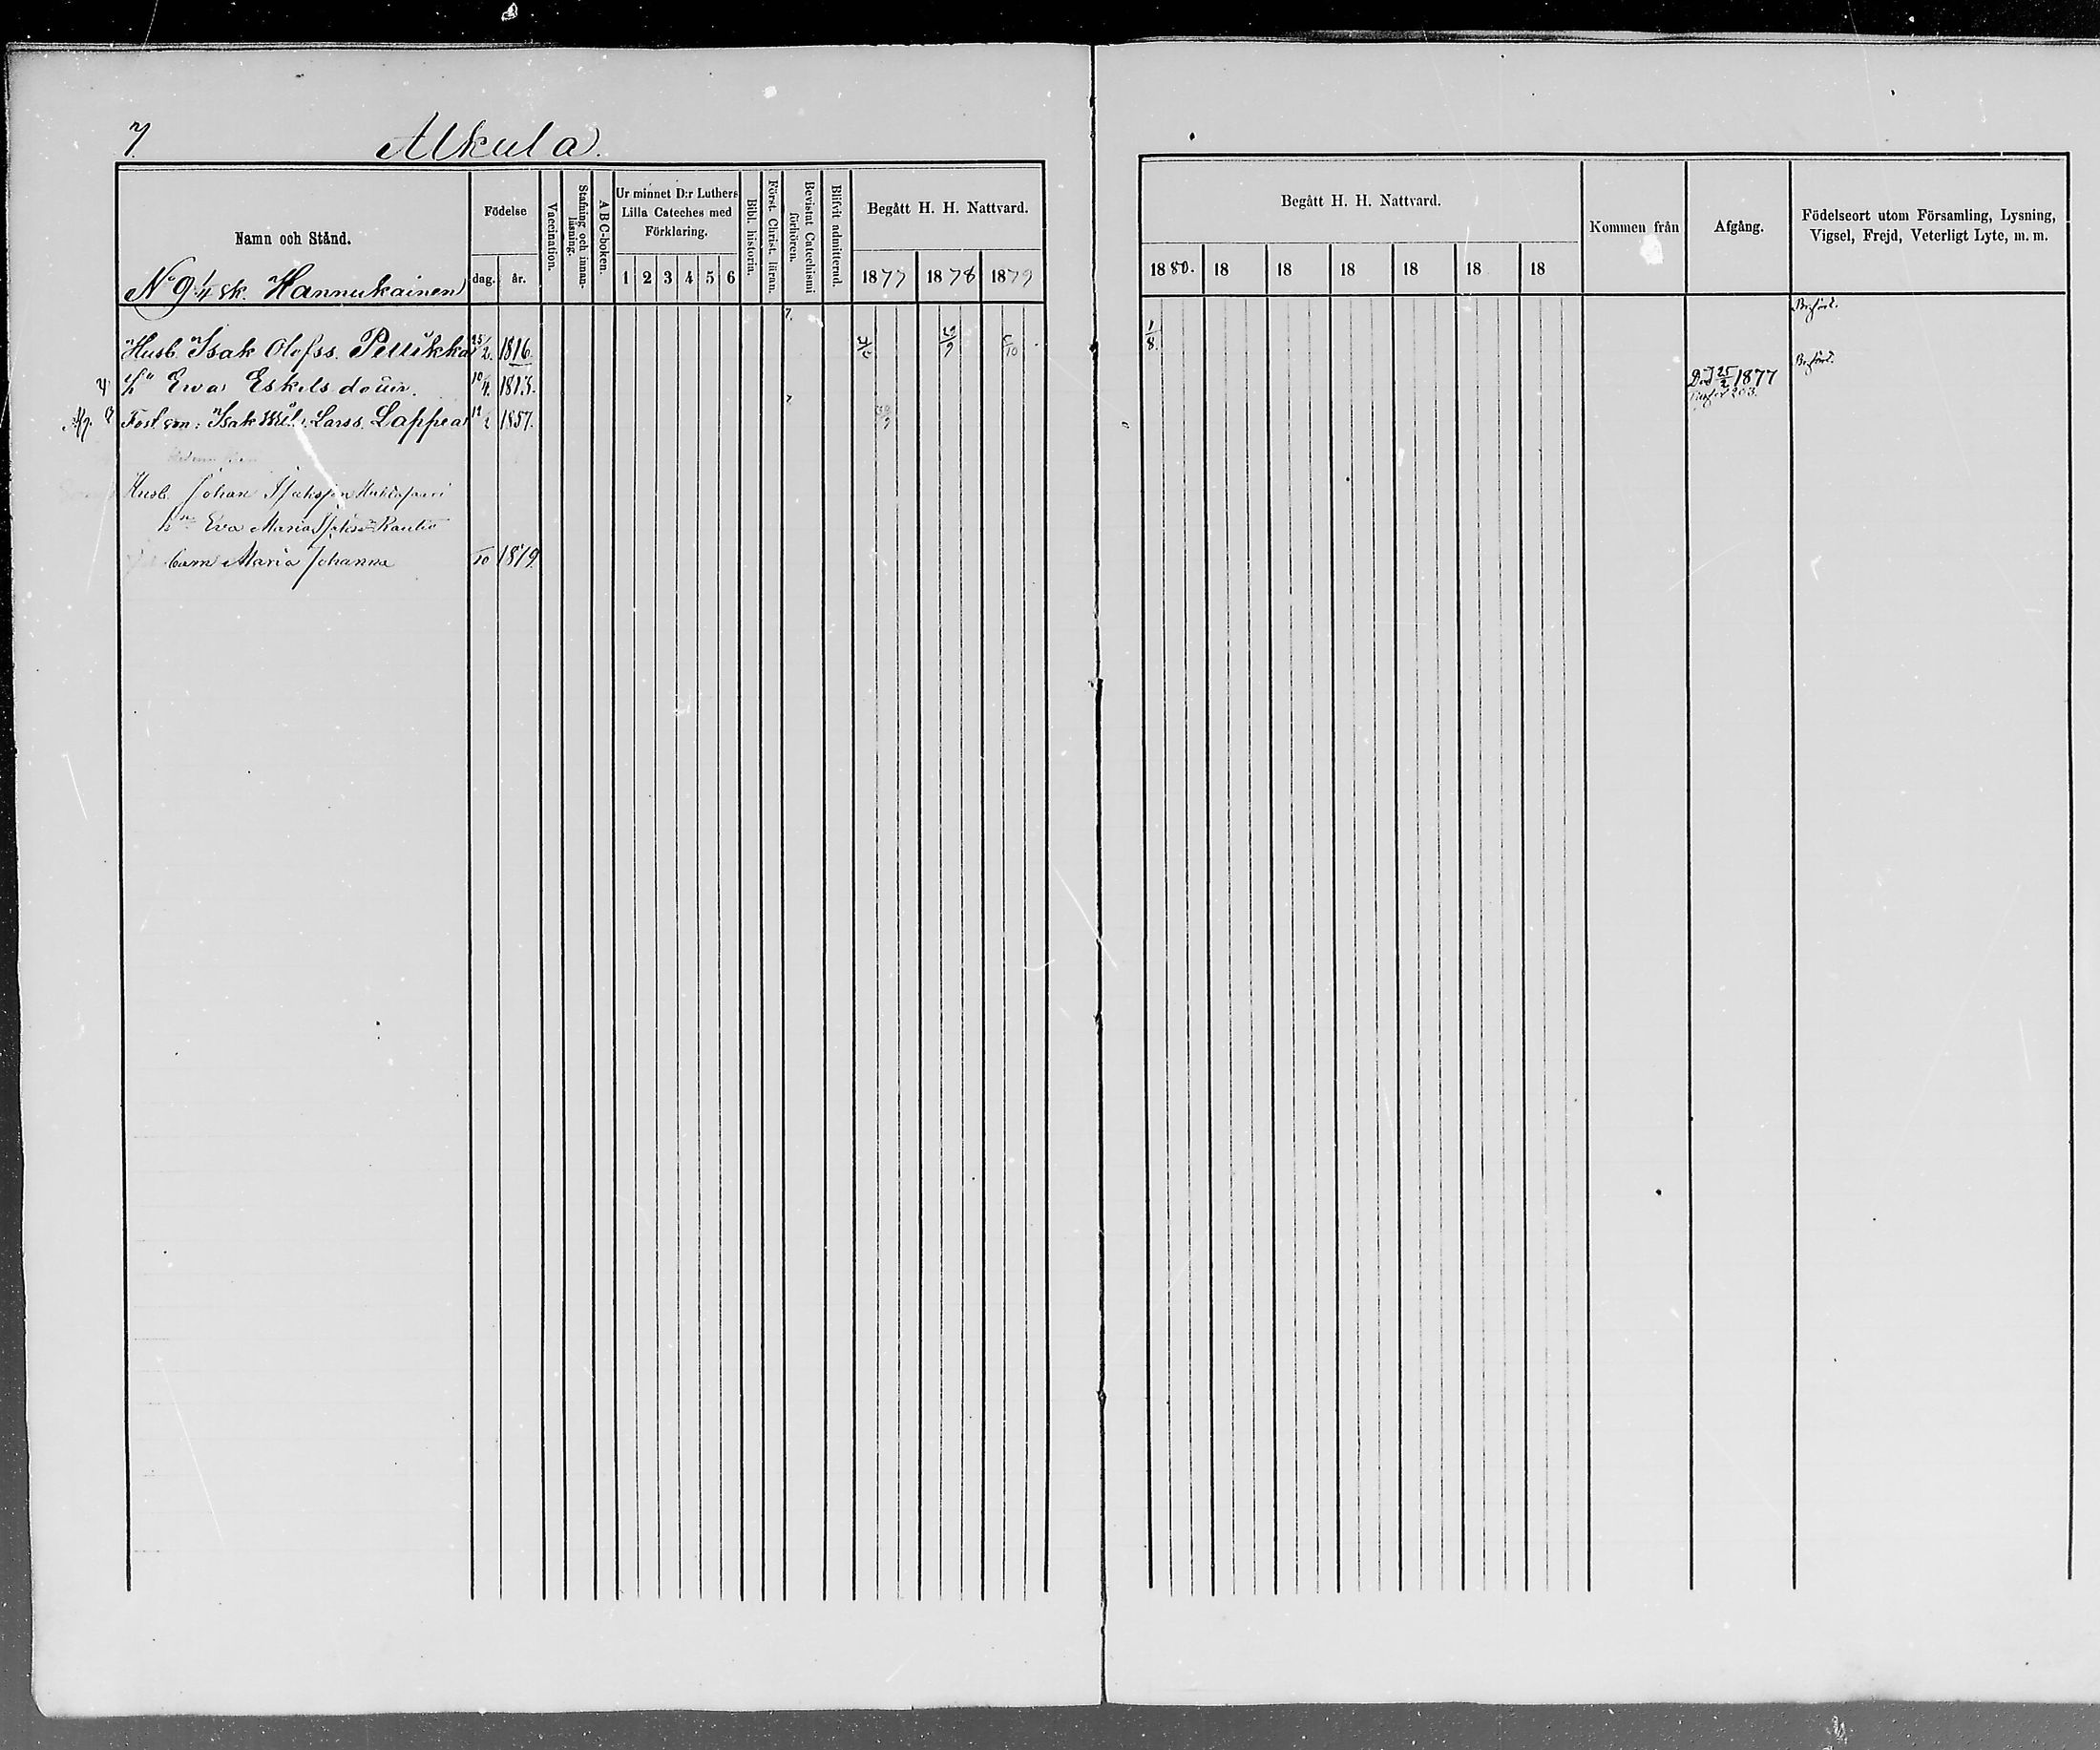 7.
Alkula.
Namn och Stånd.
Födelse
dag.
år.
Vaccination.
Stafning och innan-läsning.
A B C-boken.
Ur minnet D:r Luthers Lilla Cateches med Förklaring.
1 2 3 4 5 6
Bibl. historia.
Först. Christ. läran.
Bevistat Catechismi förhören.
Blifvit admitterad.
Begått H. H. Nattvard.
1877 1878 1879
Begått H. H. Nattvard.
1880. 18 18 18 18 18 18
Kommen från
Afgång.
Födelseort utom Församling, Lysning,
Vigsel, Frejd, Veterligt Lyte, m. m.
No 9 1/4 sk. Hannukainen
Husb. Isak Olofss. Pellikka 25/2. 1816. 1/8
h Ewa Eskelsdotter. 10/4. 1813. Död 25/2 1877
Fost.son: Isak Larss. Lappea 1857.
Husb. Johan Isaksson
hu Eva Maria Rautio
barn Maria Johanna 1879